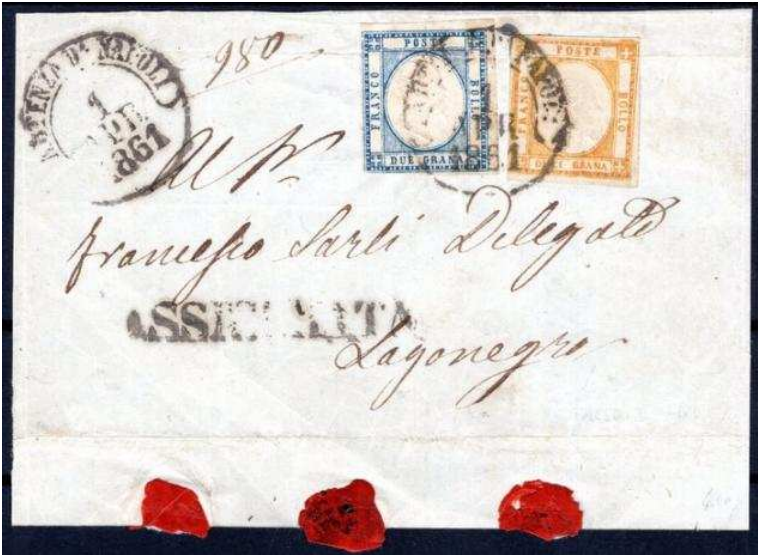 PARTENZA DA NAPOLI
1
APR
1861
980
POSTE
FRANCO
BOLLO
DUE GRANA
POSTE
FRANCO
BOLLO
DIECI GRANA
NAPOLI
APR
1861
Al Sr
Francesco Sarli Delegato
ASSICURATA
Lagonegro